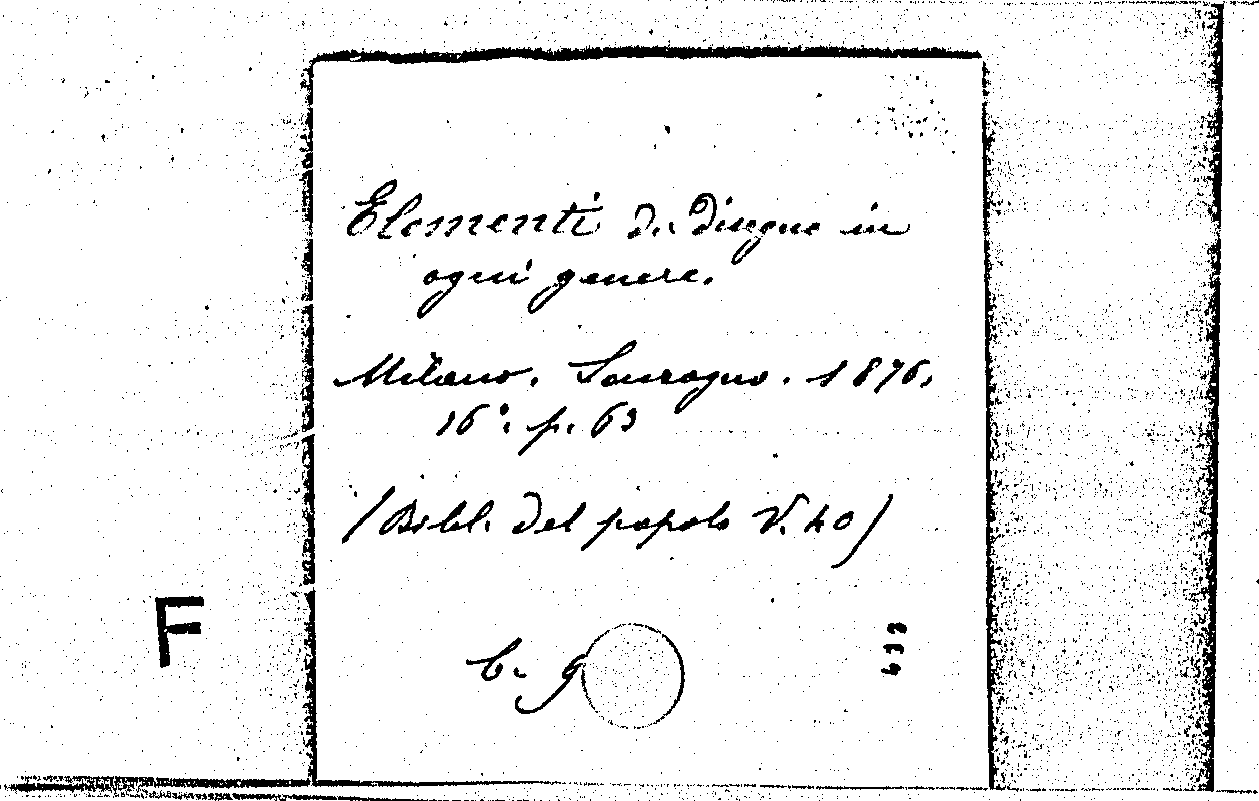 Elementi di disegno in
ogni genere.
Milano. Sonzogno. 1876.
16°. p. 63
(Bibl. del popolo V. 40)
F